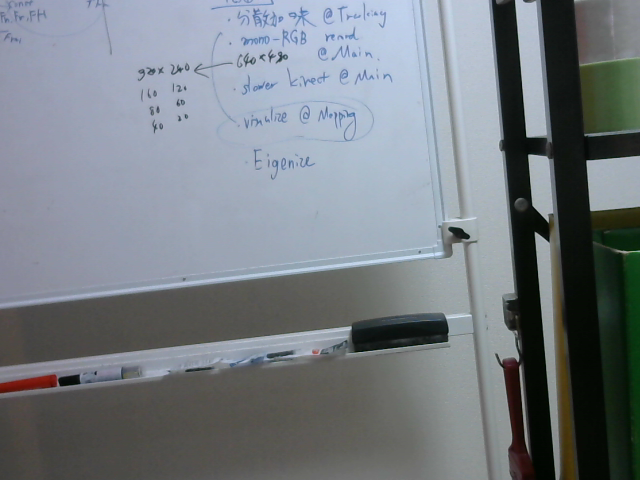 Fn, Fr, FH
・分散加味 @ Tracking
・mono-RGB
640×480 @ Main
320 × 240
160 120
80 60
40 20
・slower kinect @ Main
・visualize @ Mapping
・Eigenize